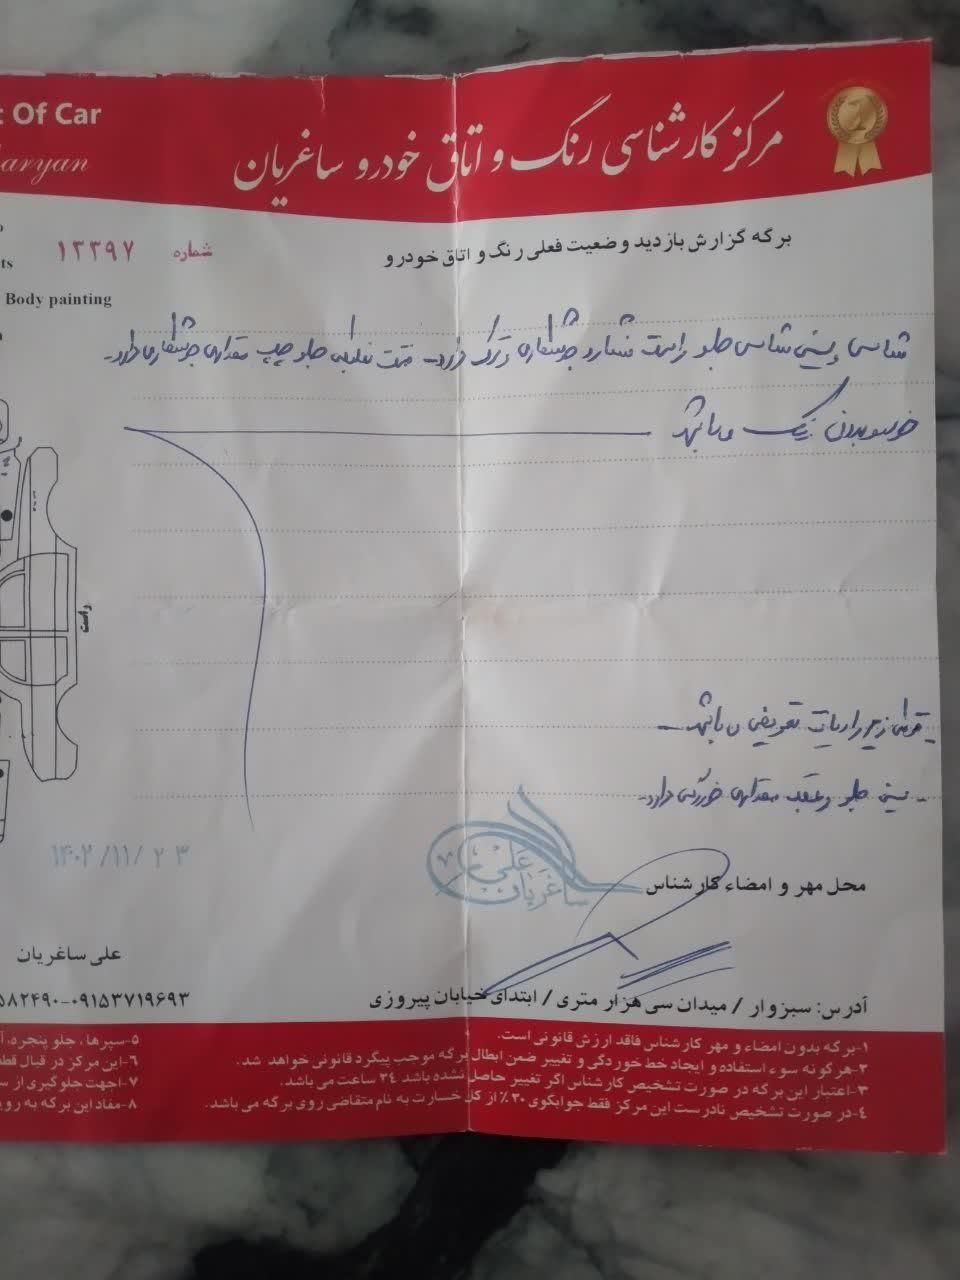 مرکز کارشناسی رنگ و اتاق خودرو ساغریان
Of Car
aryan
برگه گزارش بازدید وضعیت فعلی رنگ و اتاق خودرو
شماره ۱۳۳۹۷
ts
Body painting
شناسی سینی شناسی جلو راست جوشکاری و ترک دارد. جلو چپ مقداری جوشکاری دارد.
رنگ می باشد
راست
تعویض می باشد
- سینی جلو و عقب مقداری خوردگی دارد.
۱۴۰۲/۱۱/۲۳
علی ساغریان
محل مهر و امضاء کارشناس
علی ساغریان
آدرس: سبزوار / میدان سی هزار متری / ابتدای خیابان پیروزی
۵۸۲۴۹۰-۰۹۱۵۳۷۱۹۶۹۳
۱-برگه بدون امضاء و مهر کارشناس فاقد ارزش قانونی است.
۲-هرگونه سوء استفاده و ایجاد خط خوردگی و تغییر ضمن ابطال برگه موجب پیگرد قانونی خواهد شد.
۳-اعتبار این برگه در صورت تشخیص کارشناس اگر تغییر حاصل نشده باشد ۲۴ ساعت می باشد.
۴-در صورت تشخیص نادرست این مرکز فقط جوابگوی ۳۰٪ از کل خسارت به نام متقاضی روی برگه می باشد.
۵-سپرها، جلو پنجره،
۶-این مرکز در قبال
۷-جهت جلوگیری از
۸-مفاد این برگه به